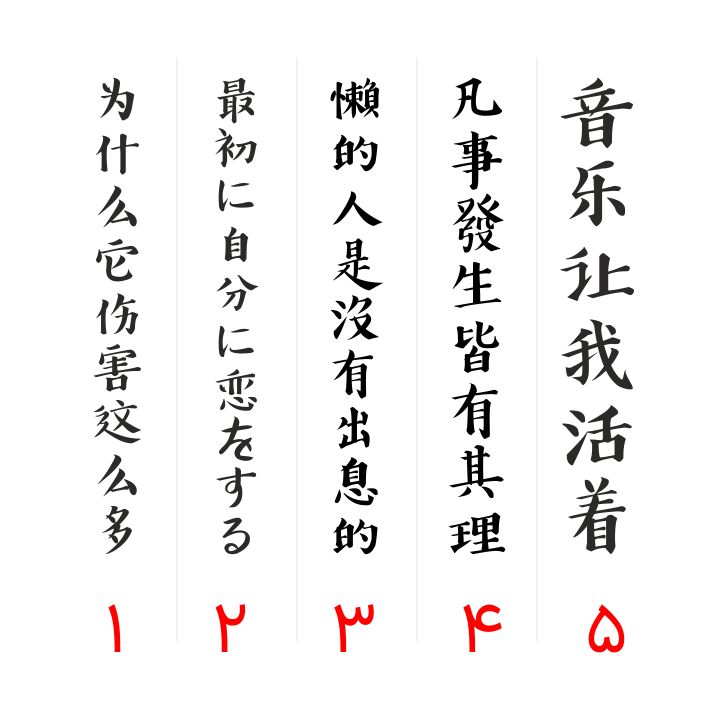 为什么它伤害这么多
最初に自分に恋をする
懶的人是沒有出息的
凡事發生皆有其理
音乐让我活着
۱ ۲ ۳ ۴ ۵